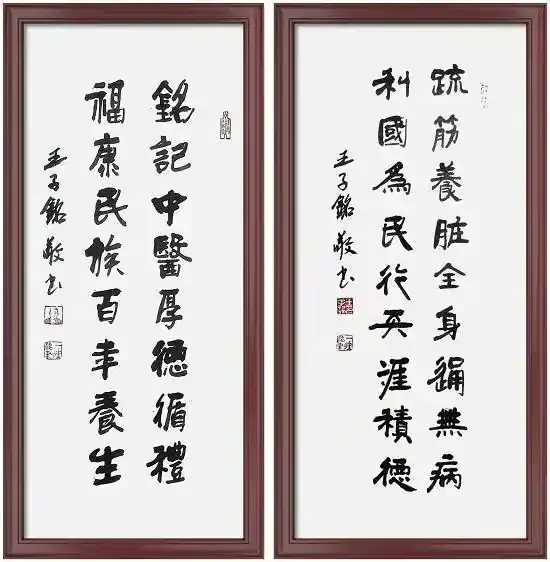 疏筋養脏全身通無病
利國為民行天涯積德
王子銘敬书
銘記中醫厚德循禮
福康民族百年養生
王子銘敬书